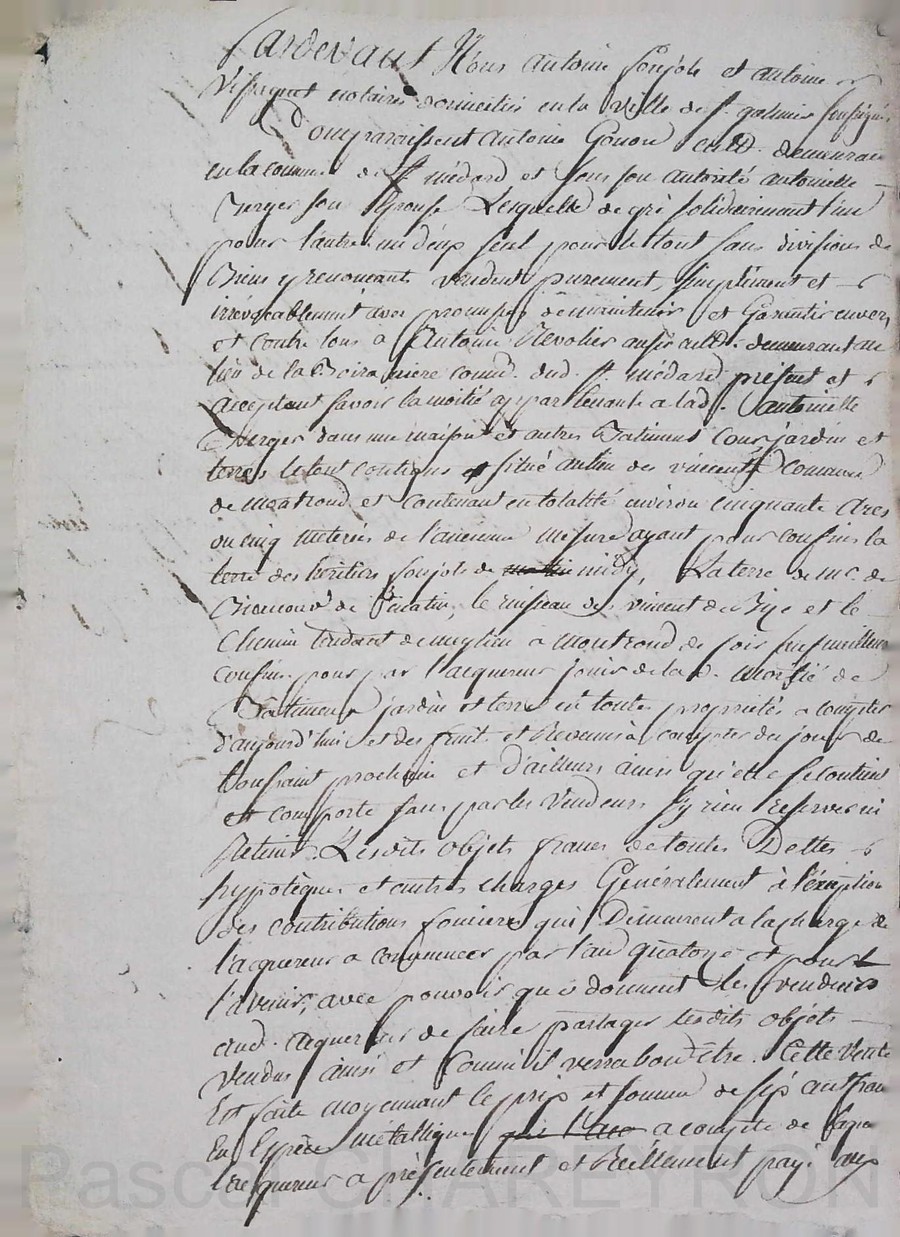 Pardevant Nous antoine Soujole et antoine
notaires domiciliés en la Ville de St. galmier soussignés
Comparaissent antoine Gonon cult. demeurant
en la commune de St. médard et sous son autorité antoinette
Verger son Epouse Lesquelles de gré solidairement l'un
pour l'autre un d'eux seul pour le tout sans divisions de
Biens y renoncant vendent purement, simplement et
irrévocablement avec promesses de maintenir et Garantir envers
et contre tous à Antoine Revolier aussi cult. demeurant au
lieu de la comm. dud. St. médard présent et
acceptant savoir la moitié appartenante a lad. antoinette
Verger dans une maison et autres Batiments Cour jardin et
terres le tout contigus et situé au lieu des vincents Commune
de montrond et contenant en totalité environ cinquante ares
ou cinq meterées de l'ancienne mesure ayant pour confins la
terre des héritiers Soujole de midy, La terre de mc. de
de le ruisseau des vincent de Bize et le
Chemin tendant de meylieu à montrond de soir sauf meilleurs
confins pour par l'acquereur jouir de lad. moitié de
Batiments jardin et terre en toutes propriétés a compter
d'aujourd'hui et des fruits et Revenus à compter du jour de
toussaint prochain et d'ailleurs ainsi qu'elle se contient
et comporte sans par les Vendeurs s'y rien reserver ni
Retenir. Lesdits objets francs de toutes Dettes
hypotèques et autres charges Généralement à l'éxception
des contributions foncieres qui Demeurent a la charge de
l'acquereur a commencer par l'an quatorze et pour
l'avenir, avec pouvoir que donnent les vendeurs
aud. aquereur de faire partager lesdits objets
Vendus ainsi et Comme il verra bon être. Cette Vente
Est faite moyennant le prix et somme de six cent francs
En Espèce métallique a compte de laquelle
l'acquereur a présentement et Réellement payé aux
Pascal CHAREYRON